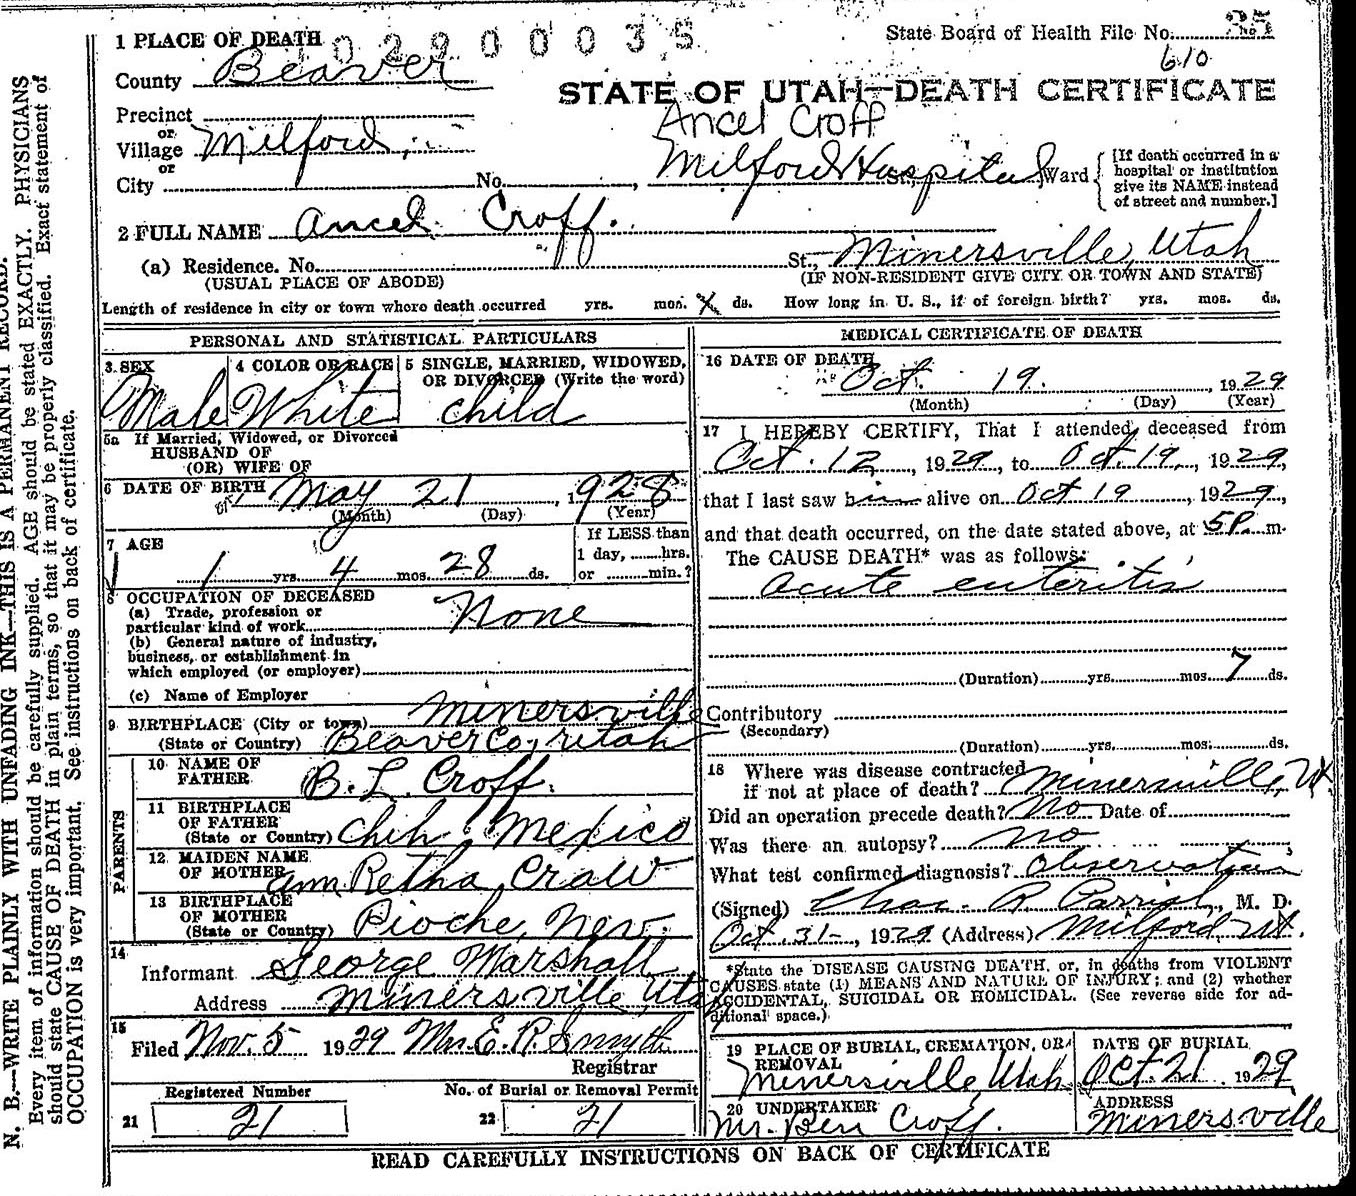 1 PLACE OF DEATH
1 0 2 9 0 0 0 3 5
State Board of Health File No. 35
610
County Beaver
STATE OF UTAH—DEATH CERTIFICATE
Precinct
Ancel Croff
or
Village Milford,
or
City No. , Milford Hospital St., Ward
[If death occurred in a
hospital or institution
give its NAME instead
of street and number.]
2 FULL NAME Ancel Croff.
(a) Residence. No. St., Minersville, Utah
(USUAL PLACE OF ABODE) (IF NON-RESIDENT GIVE CITY OR TOWN AND STATE)
Length of residence in city or town where death occurred yrs. mos. 7 ds. How long in U. S., if of foreign birth? yrs. mos. ds.
PERSONAL AND STATISTICAL PARTICULARS
3 SEX 4 COLOR OR RACE 5 SINGLE, MARRIED, WIDOWED,
OR DIVORCED (Write the word)
Male White child
5a If Married, Widowed, or Divorced
HUSBAND OF
(OR) WIFE OF
6 DATE OF BIRTH May 21, 1928
(Month) (Day) (Year)
7 AGE
If LESS than
1 day, ......hrs.
or .........min.?
1 yrs. 4 mos. 28 ds.
8 OCCUPATION OF DECEASED
(a) Trade, profession or
particular kind of work None
(b) General nature of industry,
business, or establishment in
which employed (or employer)
(c) Name of Employer
9 BIRTHPLACE (City or town) Minersville
(State or Country) Beaver Co, Utah
PARENTS
10 NAME OF
FATHER B. L. Croff.
11 BIRTHPLACE
OF FATHER
(State or Country) Chih, Mexico
12 MAIDEN NAME
OF MOTHER Ann Retha Craw
13 BIRTHPLACE
OF MOTHER
(State or Country) Pioche, Nev.
14
Informant George Marshall
Address Minersville, Utah
15
Filed Nov. 5 1929 Mrs. E. R. Smyth
Registrar
Registered Number No. of Burial or Removal Permit
21 21 22 21
MEDICAL CERTIFICATE OF DEATH
16 DATE OF DEATH
Oct. 19. , 1929
(Month) (Day) (Year)
17 I HEREBY CERTIFY, That I attended deceased from
Oct. 12, 1929, to Oct. 19, 1929,
that I last saw him alive on Oct 19, 1929,
and that death occurred, on the date stated above, at 5P. m.
The CAUSE DEATH* was as follows:
Acute enteritis
(Duration) yrs. mos. 7 ds.
Contributory
(Secondary)
(Duration) yrs. mos. ds.
18 Where was disease contracted
if not at place of death? Minersville, Ut.
Did an operation precede death? No Date of
Was there an autopsy? no
What test confirmed diagnosis? Observation
(Signed) Chas. R Parrish, M. D.
Oct 31-, 1929 (Address) Milford, Ut.
*State the DISEASE CAUSING DEATH, or, in deaths from VIOLENT
CAUSES state (1) MEANS AND NATURE OF INJURY; and (2) whether
ACCIDENTAL, SUICIDAL OR HOMICIDAL. (See reverse side for ad-
ditional space.)
19 PLACE OF BURIAL, CREMATION, OR
REMOVAL
Minersville, Utah
DATE OF BURIAL
Oct. 21, 1929
20 UNDERTAKER
Mr. Ben Croff.
ADDRESS
Minersville
READ CAREFULLY INSTRUCTIONS ON BACK OF CERTIFICATE
N. B.—WRITE PLAINLY WITH UNFADING INK—THIS IS A PERMANENT RECORD.
Every item of information should be carefully supplied. AGE should be stated EXACTLY. PHYSICIANS
should state CAUSE OF DEATH in plain terms, so that it may be properly classified. Exact statement of
OCCUPATION is very important. See instructions on back of certificate.